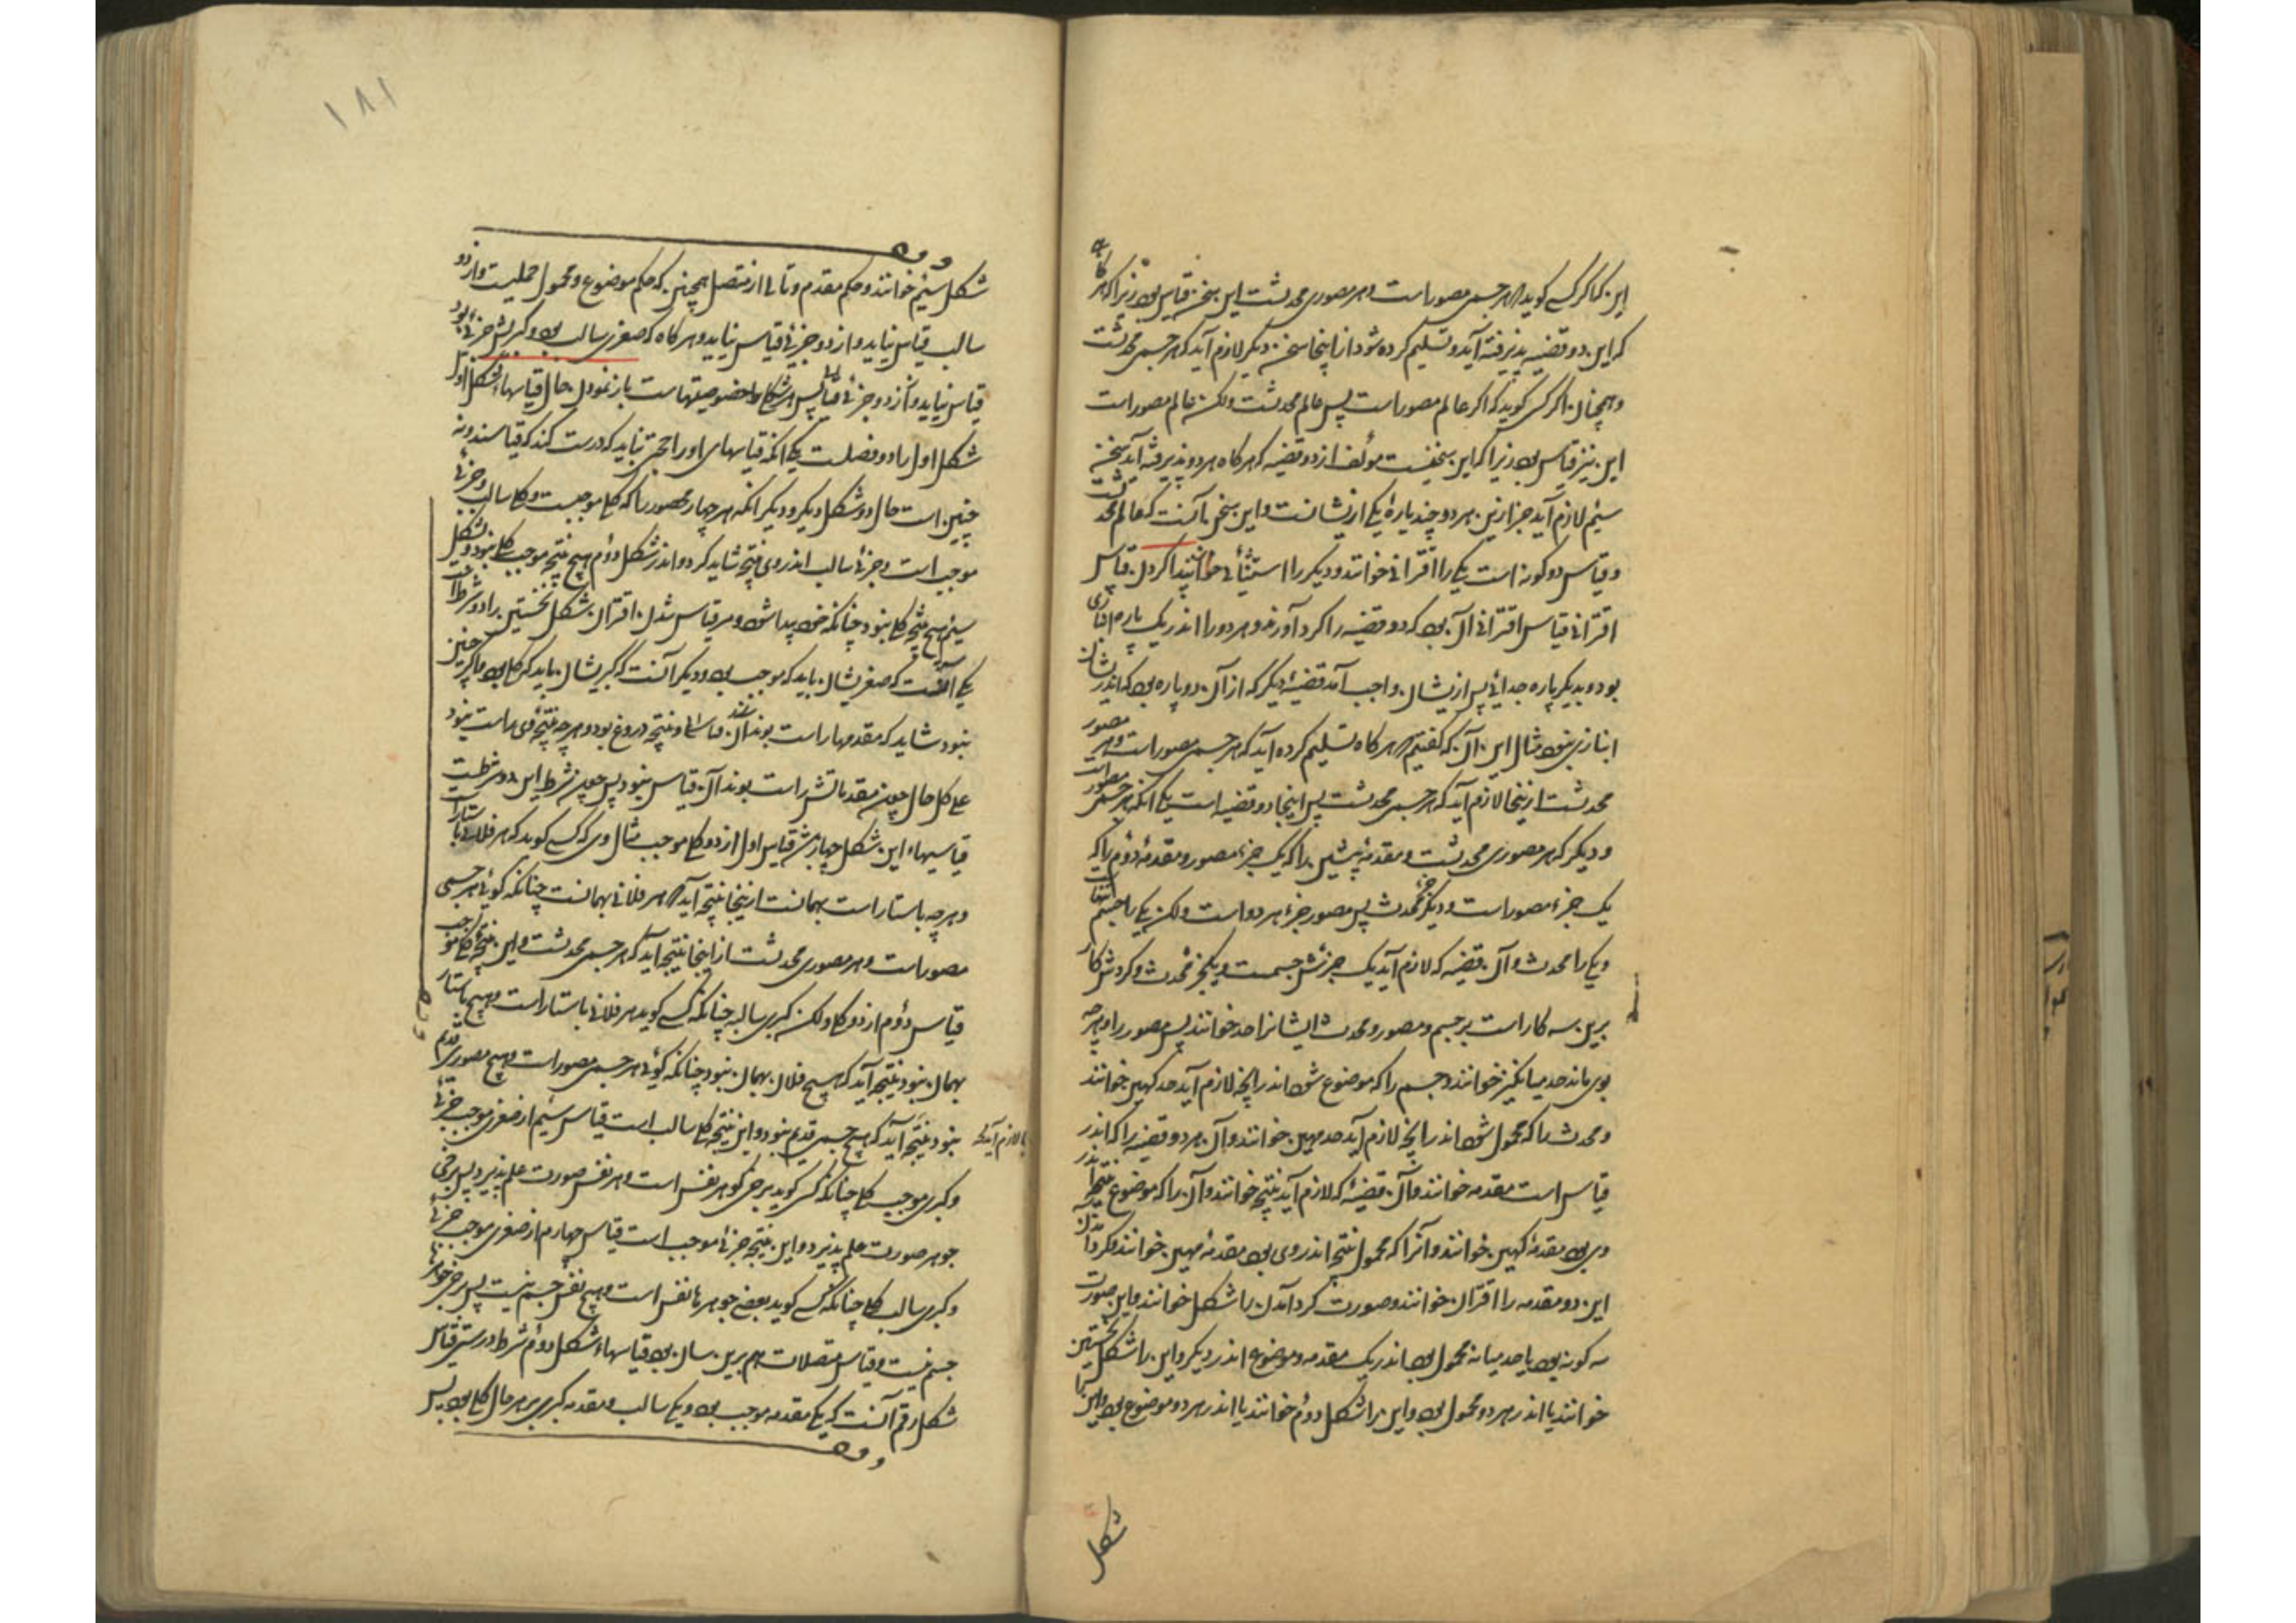 این که اگر کسی کوید هر جسمی مصور است و هر مصوری محدثست این سخن قیاس بود زیرا که هرگاه
که این دو قضیه پذیرفته آید و تسلیم کرده شود از اینجا سخن دیکر لازم آید که هر جسمی محدثست
و همچنان اکر کسی کوید که اکر عالم مصور است پس عالم محدثست ولکن عالم مصور است
این نیز قیاس بود زیرا که این سخنیست مؤلف از دو قضیه که هرکاه هر دو پذیرفته آید سخن
سیم لازم آید جز ازین هر دو چند پارهٔ یکی ازیشانست و این سخن آنست که عالم محدثست
و قیاس دو کونه است یکی را اقترانی خوانند و دیکر را استثنائی خوانند پیدا کردن قیاس
اقترانی قیاس اقترانی آن بود که دو قضیه را کرد آورند و هر دو را اندر یک پاره انبازی
بود و بدیکر پاره جدائی پس ازیشان واجب آمد قضیهٔ دیکر که از آن دو پاره بود که اندریشان
انبازی نبود مثال این آن که کفتیم هر کاه تسلیم کرده آید که هر جسمی مصور است و هر مصور
محدثست ازینجا لازم آید که هر جسمی محدثست پس اینجا دو قضیه است یکی آنکه هر جسمی مصور است
و دیکر که هر مصوری محدثست و مقدمهٔ پیشین را که یک جزء مصور و مقدمهٔ دوم را که
یک جزء مصور است و دیکر جزء محدث پس مصور جزء هر دو است ولکن یکی را جسم
و یکی را محدث و آن قضیه که لازم آید یک جزئش جسمست و یکجزء محدث و کردش کار
برین سه کار است بر جسم و مصور و محدث و ایشانرا حد خوانند پس مصور را و هرچه
بوی ماند حد میانکین خوانند و جسم را که موضوع شود اندر انچه لازم آید حد کهین خوانند
و محدث را که محمول شود اندر انچه لازم آید حد مهین خوانند و آن هر دو قضیه را که اندر
قیاس است مقدمه خوانند و آن قضیهٔ که لازم آید نتیجه خوانند و آن را که موضوع نتیجه اندر
وی بود مقدمهٔ کهین خوانند و آنرا که محمول نتیجه اندر وی بود مقدمهٔ مهین خوانند و کرد آمدن
این دو مقدمه را اقتران خوانند و صورت کرد آمدن را شکل خوانند و این صورت
سه کونه بود یا حد میانه محمول بود اندر یک مقدمه و موضوع اندر دیکر و این را شکل نخستین
خوانند یا اندر هر دو محمول بود و این را شکل دوم خوانند یا اندر هر دو موضوع بود و این را
شکل
۱۸۱
شکل سیم خوانند و حکم مقدم و تالی از متصل همچنین که حکم موضوع و محمول حملیست و از دو
سالب قیاس نیاید و از دو جزئی قیاس نیاید و هر کاه که صغری سالب بود و کبریش جزئی بود
قیاس نیاید و از دو جزئی قیاس پس هر شکلی را خصوصیتهاست باز نمودن حال قیاسهاء شکل اول
شکل اول را دو فضلست یکی آنکه قیاسهای او را حجتی نباید که درست کند که قیاسند و نه
چنین است حال دو شکل دیکر و دیکر آنکه هر چهار محصور را که کلی موجبست و کلی سالب و جزئی
موجب است و جزئی سالب اندر وی نتیجه شاید کرد و اندر شکل دوم هیچ نتیجه موجب کلی نبود و بشکل
سیم هیچ نتیجهٔ کلی نبود چنانکه خود پیدا شود و مر قیاس شدن اقتران شکل نخستین را دو شرط است
یکی آنست که صغریشان باید که موجب بود و دیکر آنست که کبریشان باید که کلی بود و اکر چنین
نبود شاید که مقدمها راست بوند و نتیجه دروغ بود و هر چه نتیجهٔ وی راست نبود
علی کل حال چون مقدماتش راست بوند آن قیاس نبود پس چون شرط این دو شرطست
قیاسهاء این شکل چهارند قیاس اول از دو کلی موجب مثال وی که کسی کوید که هر فلانی باستارست
و هر چه باستار است بهمانست ازینجا نتیجه آید که هر فلانی بهمانست چنانکه کوئی هر جسمی
مصور است و هر مصوری محدثست از اینجا نتیجه آید که هر جسمی محدثست و این نتیجهٔ کلی موجب
قیاس دوم از دو کلی ولکن کبری سالب چنانکه کسی کوید هر فلانی باستار است و هیچ باستار
بهمان نبود نتیجه آید که هیچ فلان بهمان نبود چنانکه کوئی هر جسمی مصور است و هیچ مصوری قدیم
نبود نتیجه آید که هیچ جسمی قدیم نبود و این نتیجهٔ کلی سالب است قیاس سیم از صغری موجب جزئی
یا لازم آید که
و کبری موجب کلی چنانکه کسی کوید برخی کوهر نفس است و هر نفس صورت علم پذیرد پس برخی
جوهر صورت علم پذیرد و این نتیجه جزئی موجب است قیاس چهارم از صغری موجب جزئی
و کبری سالب کلی چنانکه کسی کوید بعضی جوهرها نفس است و هیچ نفس جسم نیست پس برخی جوهرها
جسم نیست و قیاس متصلات هم برین سان بود قیاسهاء شکل دوم شرط درستی قیاس
شکل دوم آنست که یکی مقدمه موجب بود و یکی سالب و مقدمه کبری بهر حال کلی بود پس